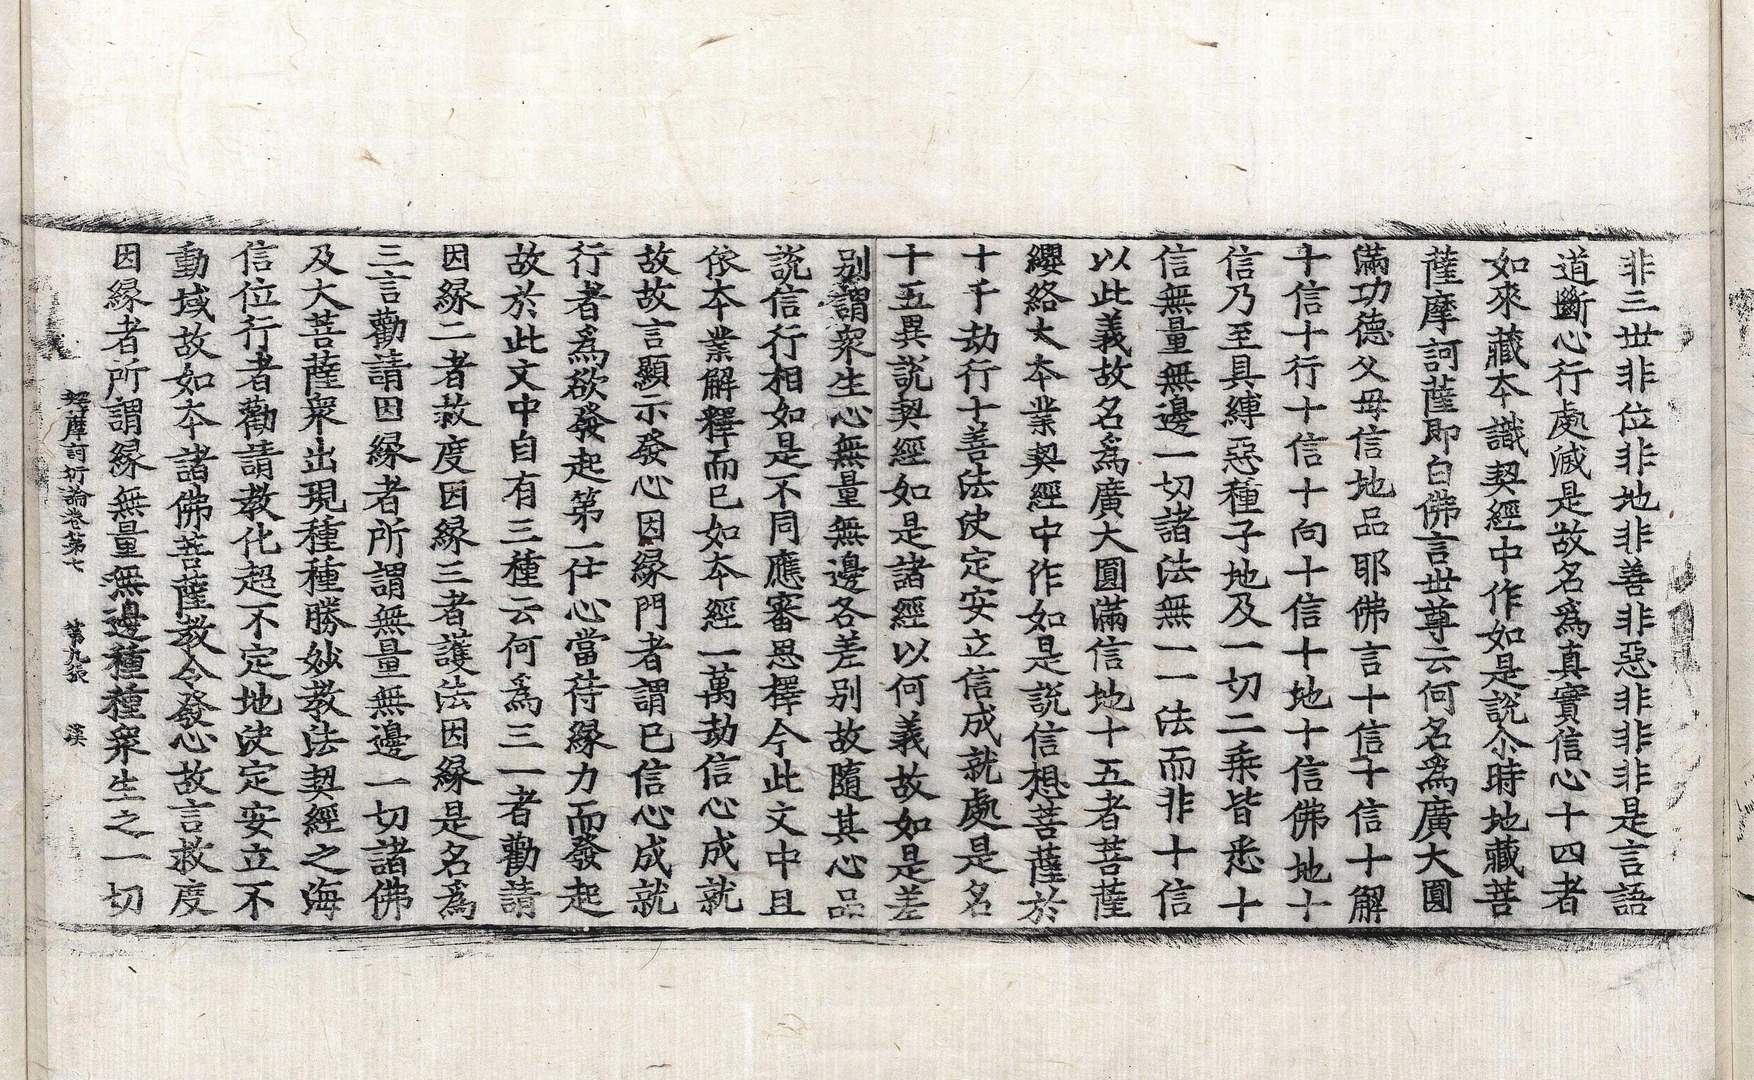 非三世非位非地非善非惡非非非是言語
道斷心行處滅是故名爲真實信心十四者
如來藏本識契經中作如是說尒時地藏菩
薩摩訶薩即白佛言世尊云何名爲廣大圓
滿功德父母信地品耶佛言十信十信十解
十信十行十信十向十信十地十信佛地十
信乃至具縛惡種子地及一切二乘皆悉十
信無量無邊一切諸法無一一法而非十信
以此義故名爲廣大圓滿信地十五者菩薩
纓絡大本業契經中作如是說信想菩薩於
十千劫行十善法決定安立信成就處是名
十五異說契經如是諸經以何義故如是差
別謂衆生心無量無邊各差別故隨其心品
說信行相如是不同應審思擇今此文中且
依本業解釋而已如本經一萬劫信心成就
故故言顯示發心因緣門者謂已信心成就
行者爲欲發起第一住心當待緣力而發起
故於此文中自有三種云何爲三一者勸請
因緣二者救度因緣三者護法因緣是名爲
三言勸請因緣者所謂無量無邊一切諸佛
及大菩薩衆出現種種勝妙教法契經之海
信位行者勸請教化超不定地決定安立不
動域故如本諸佛菩薩教令發心故言救度
因緣者所謂緣無量無邊種種衆生之一切
釋摩訶衍論卷第七 第九張 漢